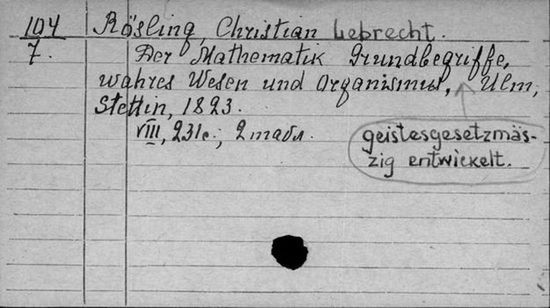 104 Rösling, Christian Lebrecht.
7. Der Mathematik Grundbegriffe,
wahres Wesen und Organismus, Ulm,
Stettin, 1823.
VIII, 231 с., 2 табл.
geistesgesetzmäs-
zig entwickelt.